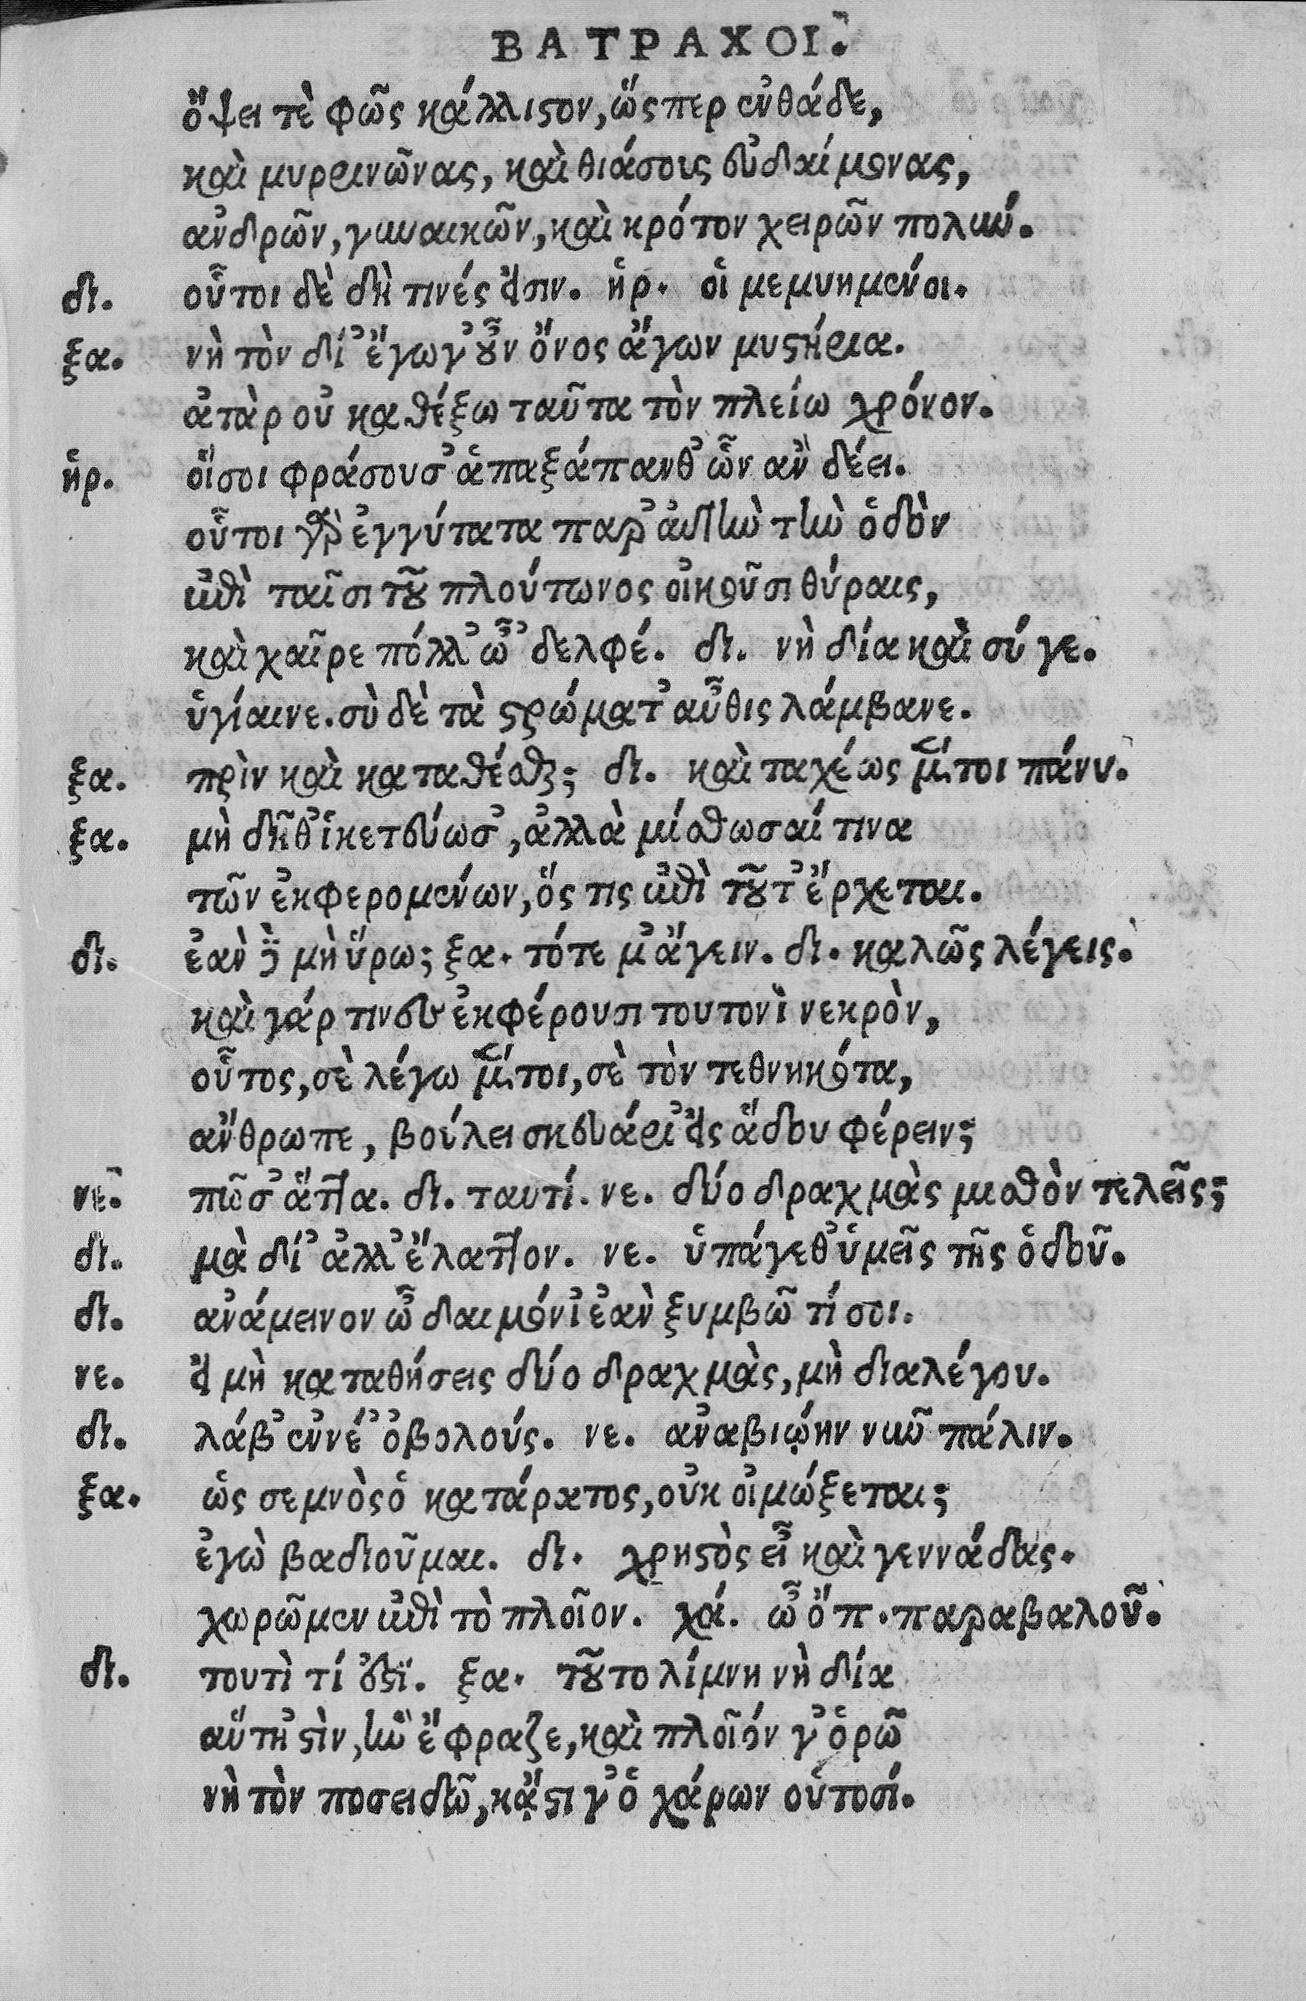 ΒΑΤΡΑΧΟΙ.
ὄψει τὲ φῶς κάλλιστον, ὥσπερ ἐνθάδε,
καὶ μυρσινῶνας, καὶ θιάσους εὐδαίμονας,
ἀνδρῶν, γυναικῶν, καὶ κρότον χειρῶν πολύν.
δι. οὗτοι δὲ δὴ τινές εἰσιν. ἡρ. οἱ μεμυημένοι.
ξα. νὴ τὸν δί' ἔγωγ' οὖν ὄνος ἄγων μυστήρια.
ἀτὰρ οὐ καθέξω ταῦτα τὸν πλείω χρόνον.
ἡρ. οἵ σοι φράσουσ' ἁπαξάπανθ' ὧν ἂν δέει.
οὗτοι γὰρ ἐγγύτατα παρ' αὐτὴν τὴν ὁδὸν
ἐπὶ ταῖσι τοῦ πλούτωνος οἰκοῦσι θύραις,
καὶ χαῖρε πόλλ' ὦ' δελφέ. δι. νὴ δία καὶ σύ γε.
ὑγίαινε. σὺ δὲ τὰ στρώματ' αὖθις λάμβανε.
ξα. πρὶν καὶ καταθέσθαι; δι. καὶ ταχέως μέντοι πάνυ.
ξα. μὴ δῆθ' ἱκετεύωσ', ἀλλὰ μίσθωσαί τινα
τῶν ἐκφερομένων, ὅς τις ἐπὶ τοῦτ' ἔρχεται.
δι. ἐὰν δὲ μὴ ὕρω; ξα. τότε μ' ἄγειν. δι. καλῶς λέγεις.
καὶ γάρ τιν' ἐκφέρουσι τουτονὶ νεκρὸν,
οὗτος, σὲ λέγω μέντοι, σὲ τὸν τεθνηκότα,
ἄνθρωπε, βούλει σκευάρι' εἰς ᾅδου φέρειν;
νε. πῶσ' ἄττα. δι. ταυτί. νε. δύο δραχμὰς μισθὸν τελεῖς;
δι. μὰ δί' ἀλλ' ἔλαττον. νε. ὑπάγεθ' ὑμεῖς τῆς ὁδοῦ.
δι. ἀνάμεινον ὦ δαιμόνι' ἐὰν ξυμβῶ τί σοι.
νε. εἰ μὴ καταθήσεις δύο δραχμὰς, μὴ διαλέγου.
δι. λάβ' ἐννέ' ὀβολούς. νε. ἀναβιῴην νῦν πάλιν.
ξα. ὡς σεμνὸς ὁ κατάρατος, οὐκ οἰμώξεται;
ἐγὼ βαδιοῦμαι. δι. χρηστὸς εἶ καὶ γεννάδας.
χωρῶμεν ἐπὶ τὸ πλοῖον. χά. ὦ ὄπ. παραβαλοῦ.
δι. τουτὶ τί ἐστί. ξα. τοῦτο λίμνη νὴ δία
αὕτη' στὶν, ἣν ἔφραζε, καὶ πλοῖόν γ' ὁρῶ
νὴ τὸν ποσειδῶ, κᾄστι γ' ὁ χάρων οὑτοσί.